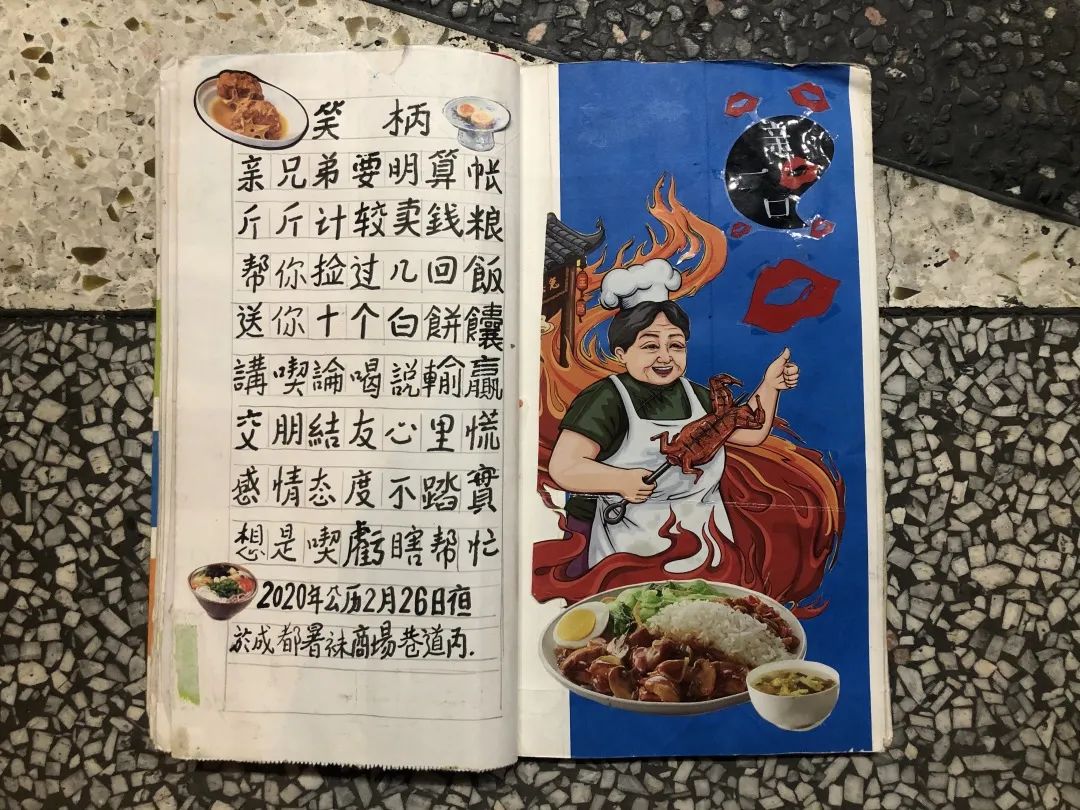 笑柄
亲兄弟要明算帐
斤斤计较卖錢粮
帮你捡过几回飯
送你十个白餅饢
講喫論喝説輸贏
交朋結友心里慌
感情态度不踏實
想是喫虧瞎帮忙
2020年公历2月26日夜
於成都署袜商場巷道丙.